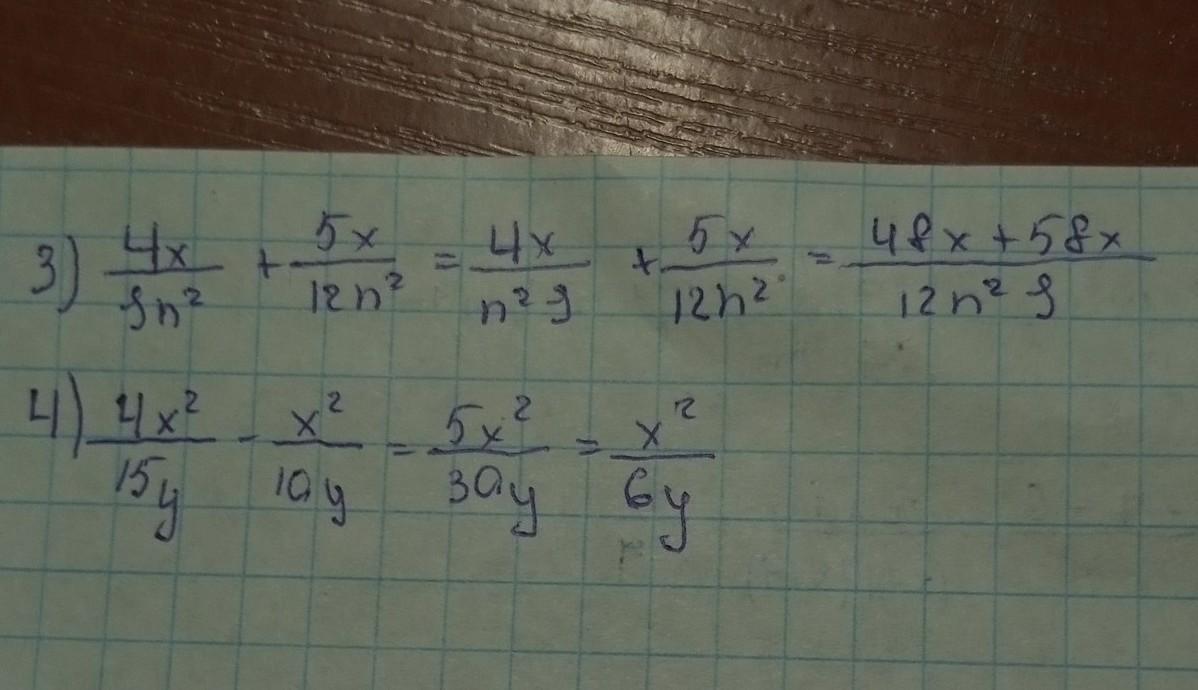 3) 4x/9n² + 5x/12n² = 4x/n²9 + 5x/12n² = 48x+58x/12n²9
4) 4x²/15y - x²/10y = 5x²/30y = x²/6y